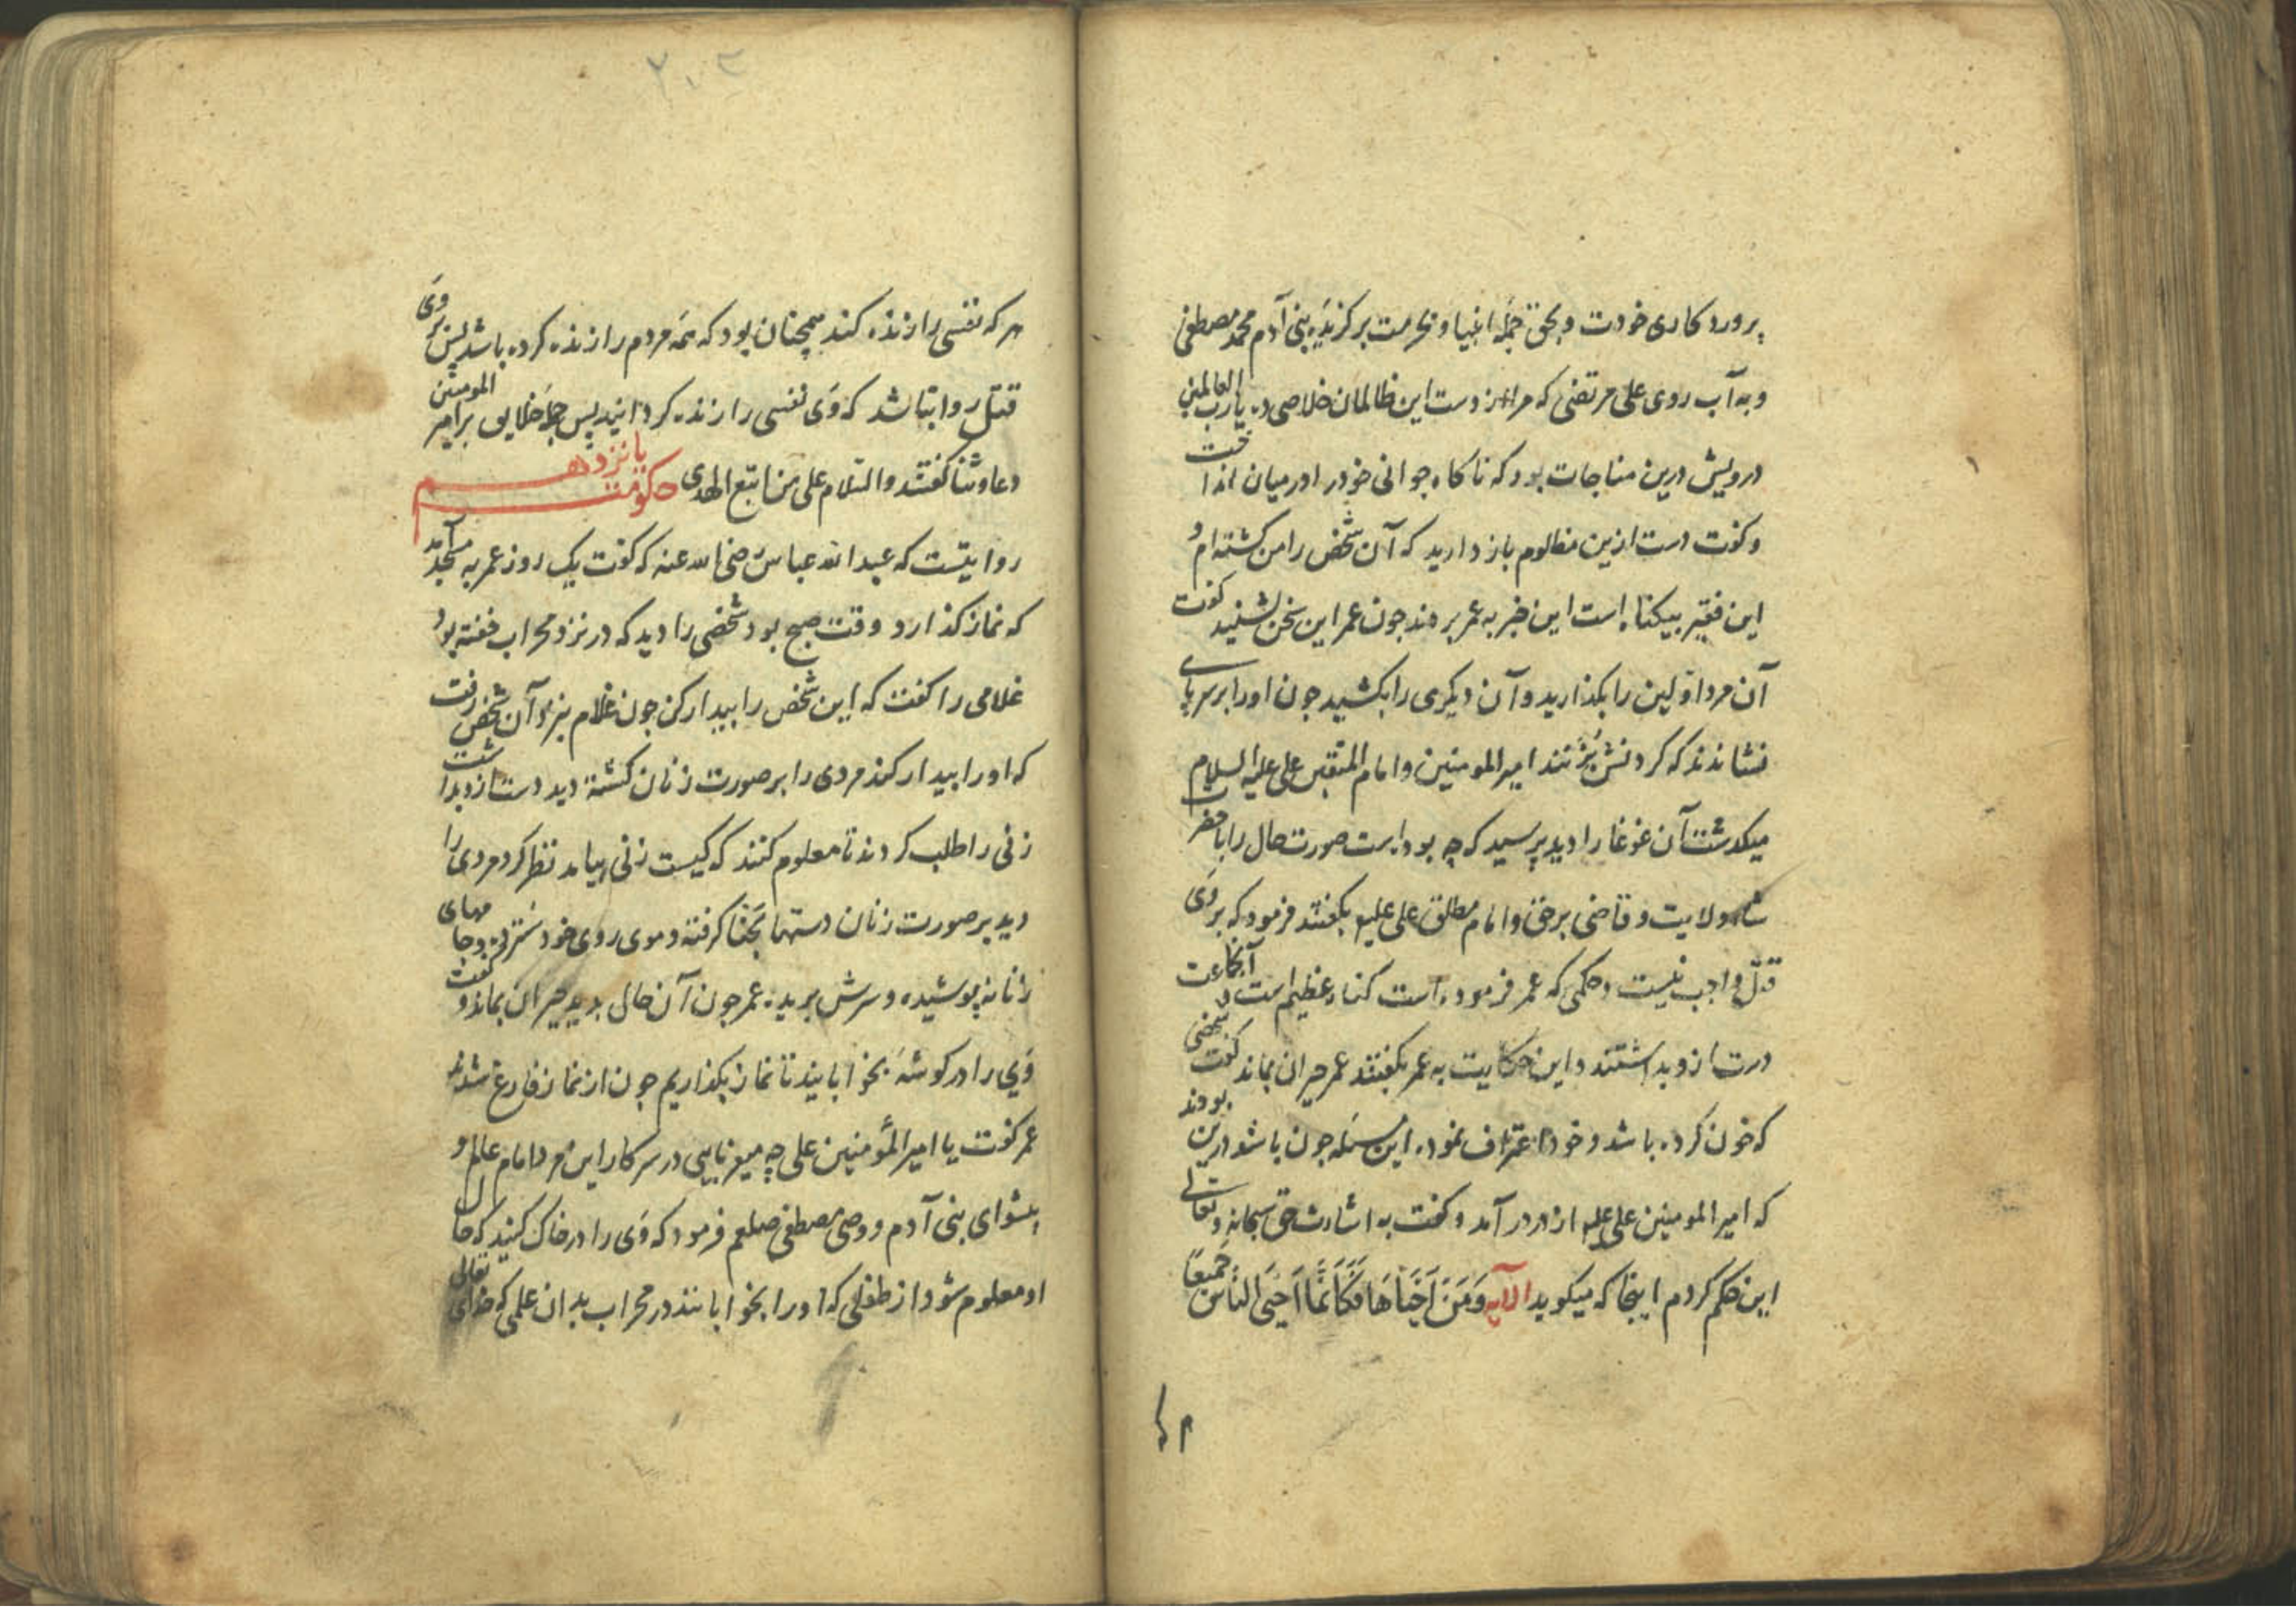 پروردکاری خودت و بحق جمله انبیا و بحرمت برکزیده بنی آدم محمد مصطفی
و به آب روی علی مرتضی که مرا از دست این ظالمان خلاصی ده یا رب العالمین
درویش درین مناجات بود که ناکاه جوانی خود را در میان انداخت
و کفت دست ازین مظلوم باز دارید که آن شخص را من کشته ام و
این فقیر بیکناه است این خبر به عمر بردند جون عمر این سخن بشنید کفت
آن مرد اولین را بکذارید و آن دیکری را بکشید جون او را بر سر پای
نشاندند که کردنش بزنند امیر المومنین و امام المتقین علی علیه السلام
میکدشت آن غوغا را دید پرسید که چه بوده است صورت حال را با حضرت
شاه ولایت و قاضی برحق و امام مطلق علی علیه بکفتند فرمود که بر وی
قتل واجب نیست و حکمی که عمر فرموده است کناه عظیم است آنجماعت
دست ازو بداشتند و این حکایت به عمر بکفتند عمر حیران بماند و کفت شخصی
که خون کرده باشد و خود اعتراف نموده این مسئله جون باشد درین بودند
که امیر المومنین علی علیه از در در آمد و کفت به اشارت حق سبحانه و تعالی
این حکم کردم اینجا که میکوید الآیه وَمَنْ اَحْیَاهَا فَکَاَنَّمَا اَحْیَی النَّاسَ جَمِیعًا
۲۰۲
هر که نفسی را زنده کند همچنان بود که همه مردم را زنده کرده باشد پس بر وی
قتل روا نباشد که وی نفسی را زنده کردانید پس جمله خلایق بر امیر المومنین
دعا و ثنا کفتند والسّلام علی من اتبع الهدی حکومت پانزدهم
روایتست که عبد الله عباس رضی الله عنه که کفت یک روز عمر به مسجد آمد
که نماز کذارد وقت صبح بود شخصی را دید که در نزد محراب خفته بود
غلامی را کفت که این شخص را بیدار کن جون غلام بنزد آن شخص رفت
که او را بیدار کند مردی را بر صورت زنان کشته دید دست ازو بداشت
زنی را طلب کردند تا معلوم کنند که کیست زنی بیامد نظر کرد مردی را
دید بر صورت زنان دستها بحنا کرفته و موی روی خود سترده و جامهای
زنانه پوشیده و سرش بریده عمر جون آن حال بدید حیران بماند و کفت
وی را در کوشه بخوابانید تا نماز بکذاریم جون از نماز فارغ شدند
عمر کفت یا امیر المؤمنین علی چه میفرمایی در سر کار این مرد امام عالم و
پیشوای بنی آدم و وصی مصطفی صلعم فرمود که وی را در خاک کنید که حال
او معلوم شود از طفلی که او را بخوابانند در محراب بدان علمی که خدای تعالی